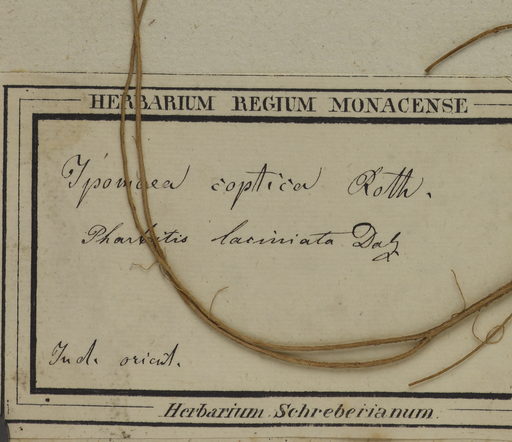 HERBARIUM REGIUM MONACENSE
Ipomaea coptica Roth.
Pharbitis laciniata Dalz
Ind. orient.
Herbarium Schreberianum.